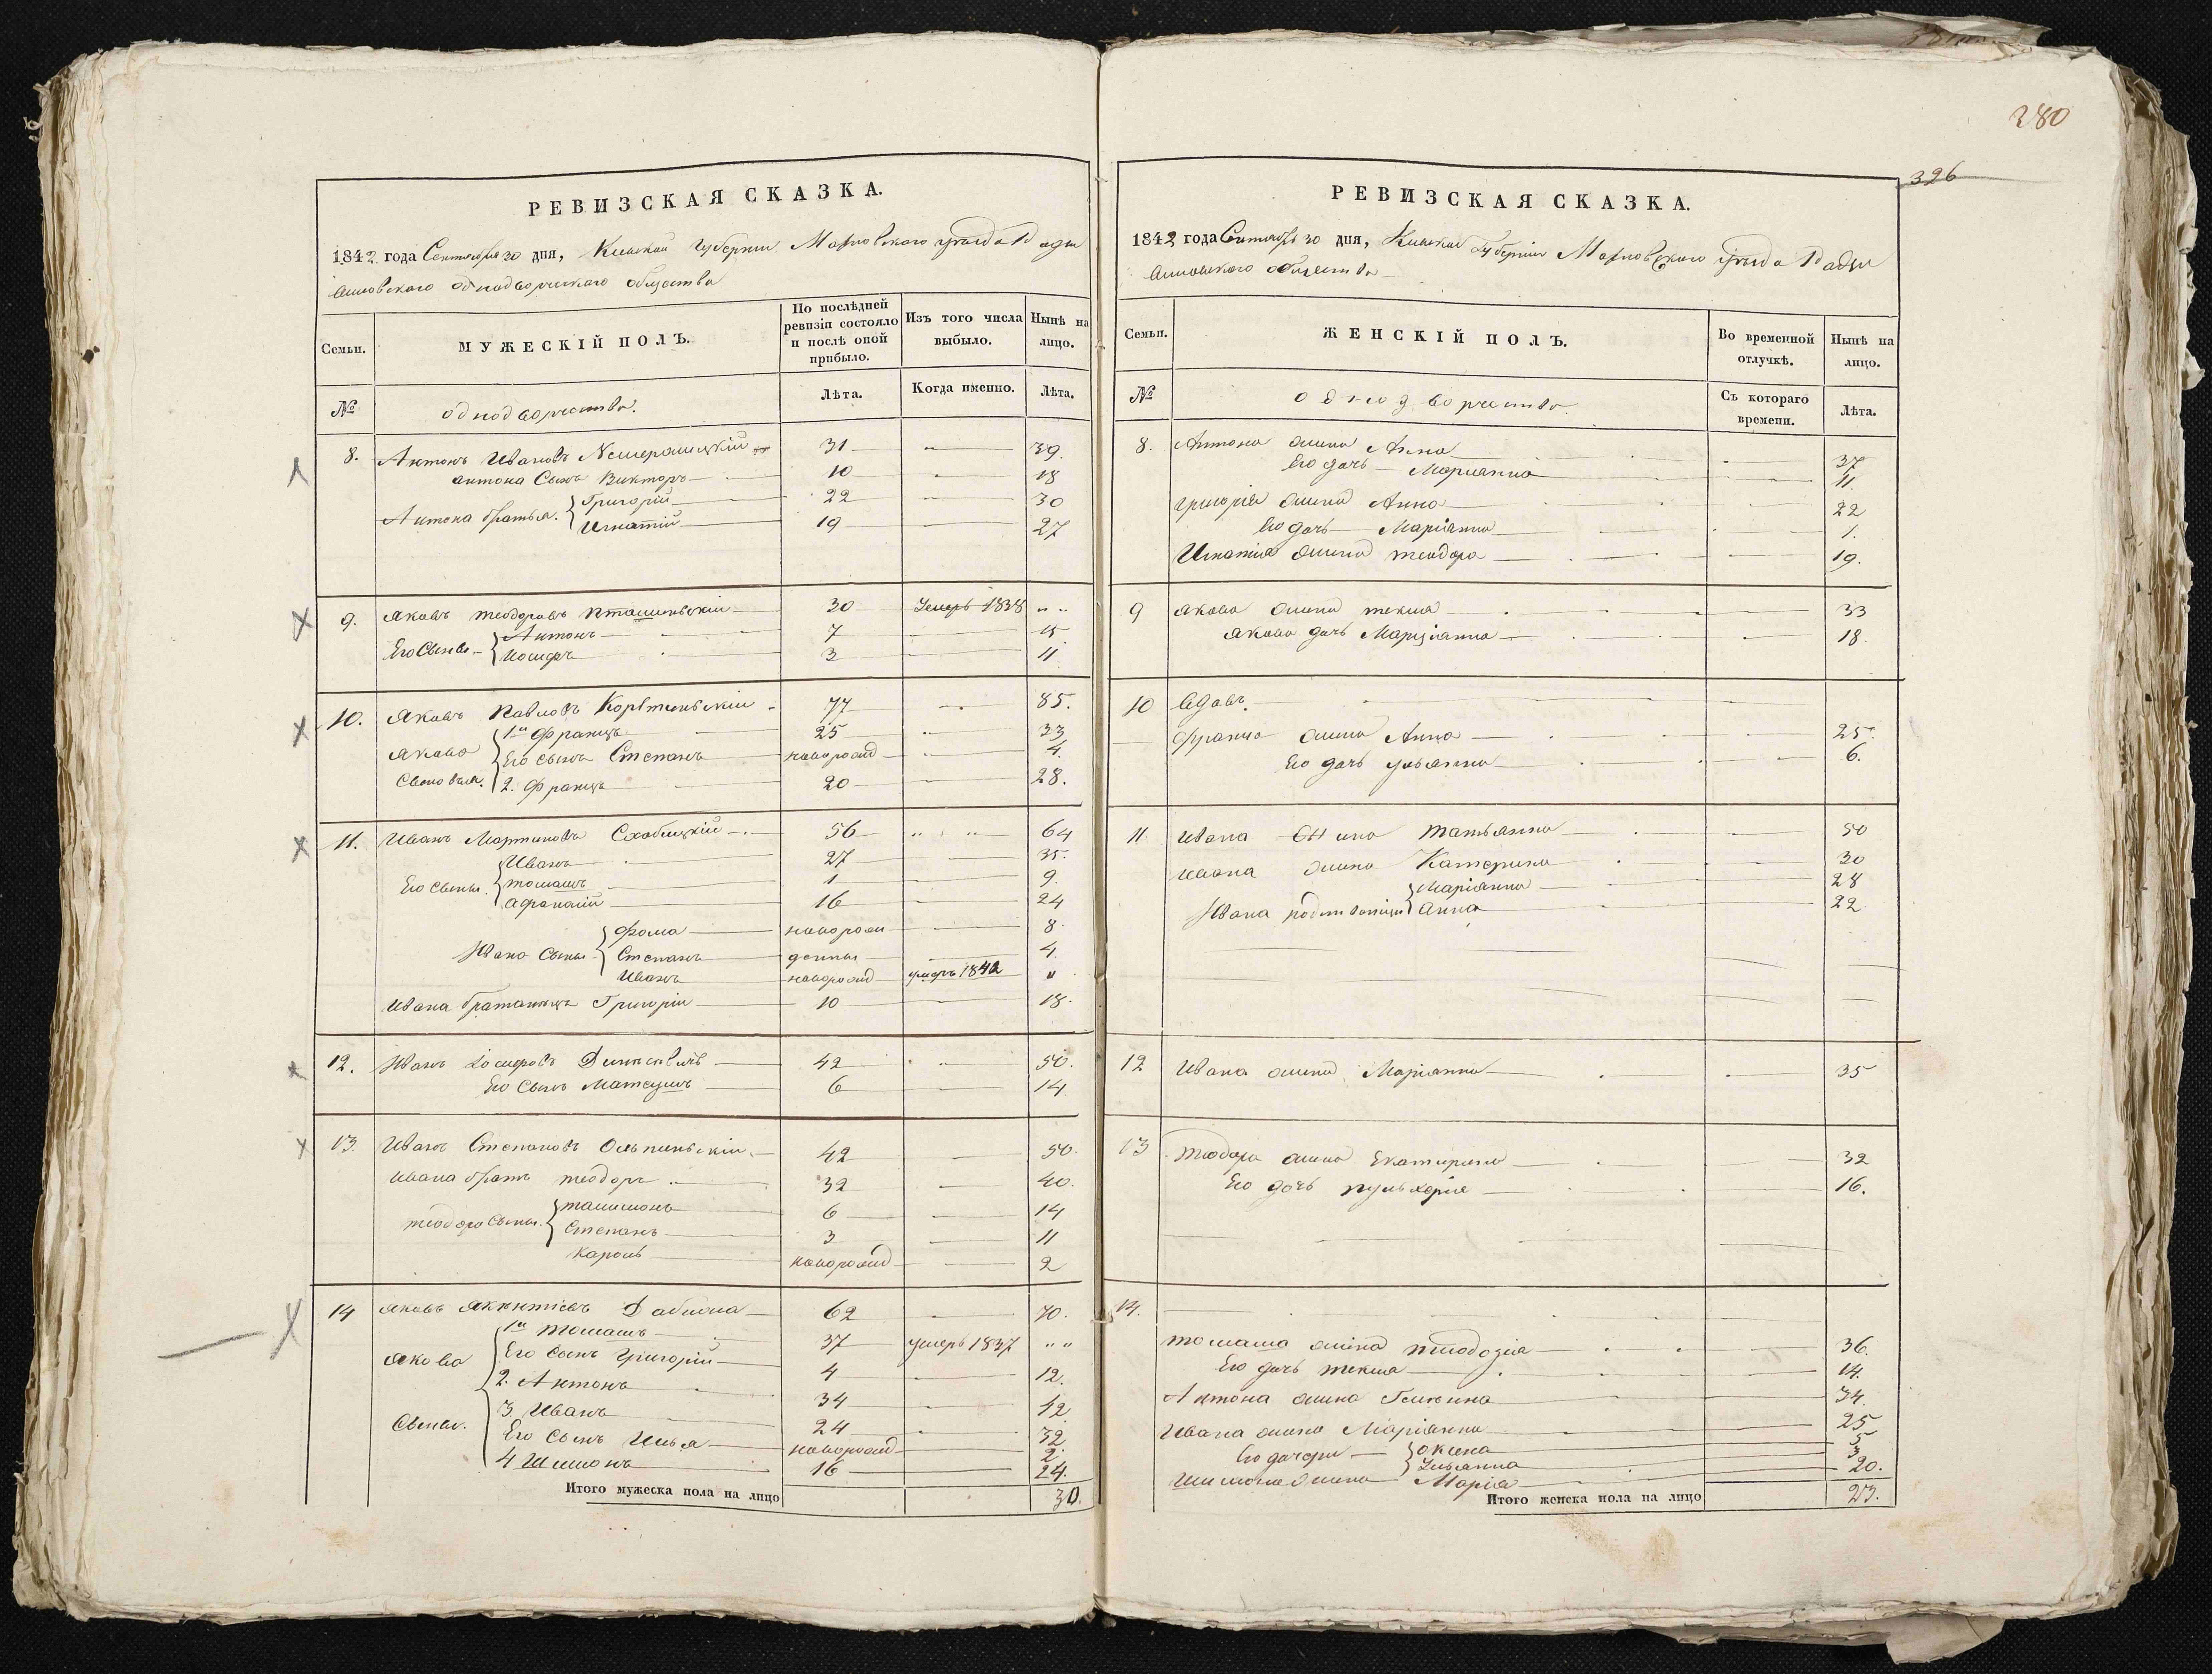 280
326
РЕВИЗСКАЯ СКАЗКА.
1842 года Сентября 30 дня, Киевской Губернии уѣзда
однодворческаго общества
Семьи.
МУЖЕСКІЙ ПОЛЪ.
По послѣдней ревизіи состояло и послѣ оной прибыло.
Изъ того числа выбыло.
Нынѣ на лицо.
№
однодворчества.
Лѣта.
Когда именно.
Лѣта.
8. Антонъ Ивановъ 31 39.
Антона Сынъ Викторъ 10 18
Антона братья. Григорій 22 30
Игнатій 19 27
9. Яковъ теодоровъ 30 Умеръ 1838 " "
Его Сыны Антонъ 7 15
Іосифъ 3 11
10. Яковъ Павловъ 77 85.
Якова Сыновья. 1й Францъ 25 33
Его сынъ Степанъ новорожд 4.
2. Францъ 20 28.
11. Иванъ Мартиновъ 56 " " 64
Его сыны. Иванъ 27 35.
томашъ 1 9.
Афанасій 16 24
Ивана Сыны Фома новорож 8.
Степанъ денны 4.
Иванъ новорожд умеръ 1842 "
Ивана Григорій 10 18.
12. Иванъ Іосифовъ 42 50.
Его Сынъ Матеушъ 6 14
13. Иванъ Степановъ 42 50.
Ивана братъ теодоръ 32 40.
теодора Сыны. 6 14
Степанъ 3 11
Кароль новорожд 2
14 Яковъ 62 70.
Якова Сыны. 1й Томашъ 37 умеръ 1837 " "
Его сынъ Григорій 4 12.
2. Антонъ 34 42
3. Иванъ 24 32
Его Сынъ Илья новорожд 2.
4 Шимонъ 16 24.
Итого мужеска пола на лицо 30.
РЕВИЗСКАЯ СКАЗКА.
1842 года Сентября 30 дня, Киевской Губерніи уѣзда
общества
Семьи.
ЖЕНСКІЙ ПОЛЪ.
Во временной отлучкѣ.
Нынѣ на лицо.
№
однодворчества.
Съ котораго времени.
Лѣта.
8. Антона жена Анна 37
Его дочь Марианна 11.
Григорія жена Анна 22
Его дочь Маріанна 1.
Игнатія жена теодора 19.
9 Якова жена текля 33
Якова дочь Марціанна 18.
10 Вдовъ.
Франца жена Анна 25.
Его дочь 6.
11. Ивана жена Татьянна 50
Ивана жена Катерина 30
Ивана Маріанна 28
Анна 22
12 Ивана жена Маріанна 35
13 Теодора жена Екатерина 32
Его дочь пульхерія 16.
14.
томаша жена 36.
Его дочь текля 14.
Антона жена 34.
Ивана жена Маріанна 25
Его дочери Оксена 5
Ульянна 3
жена Марія 20.
Итого женска пола на лицо 23.